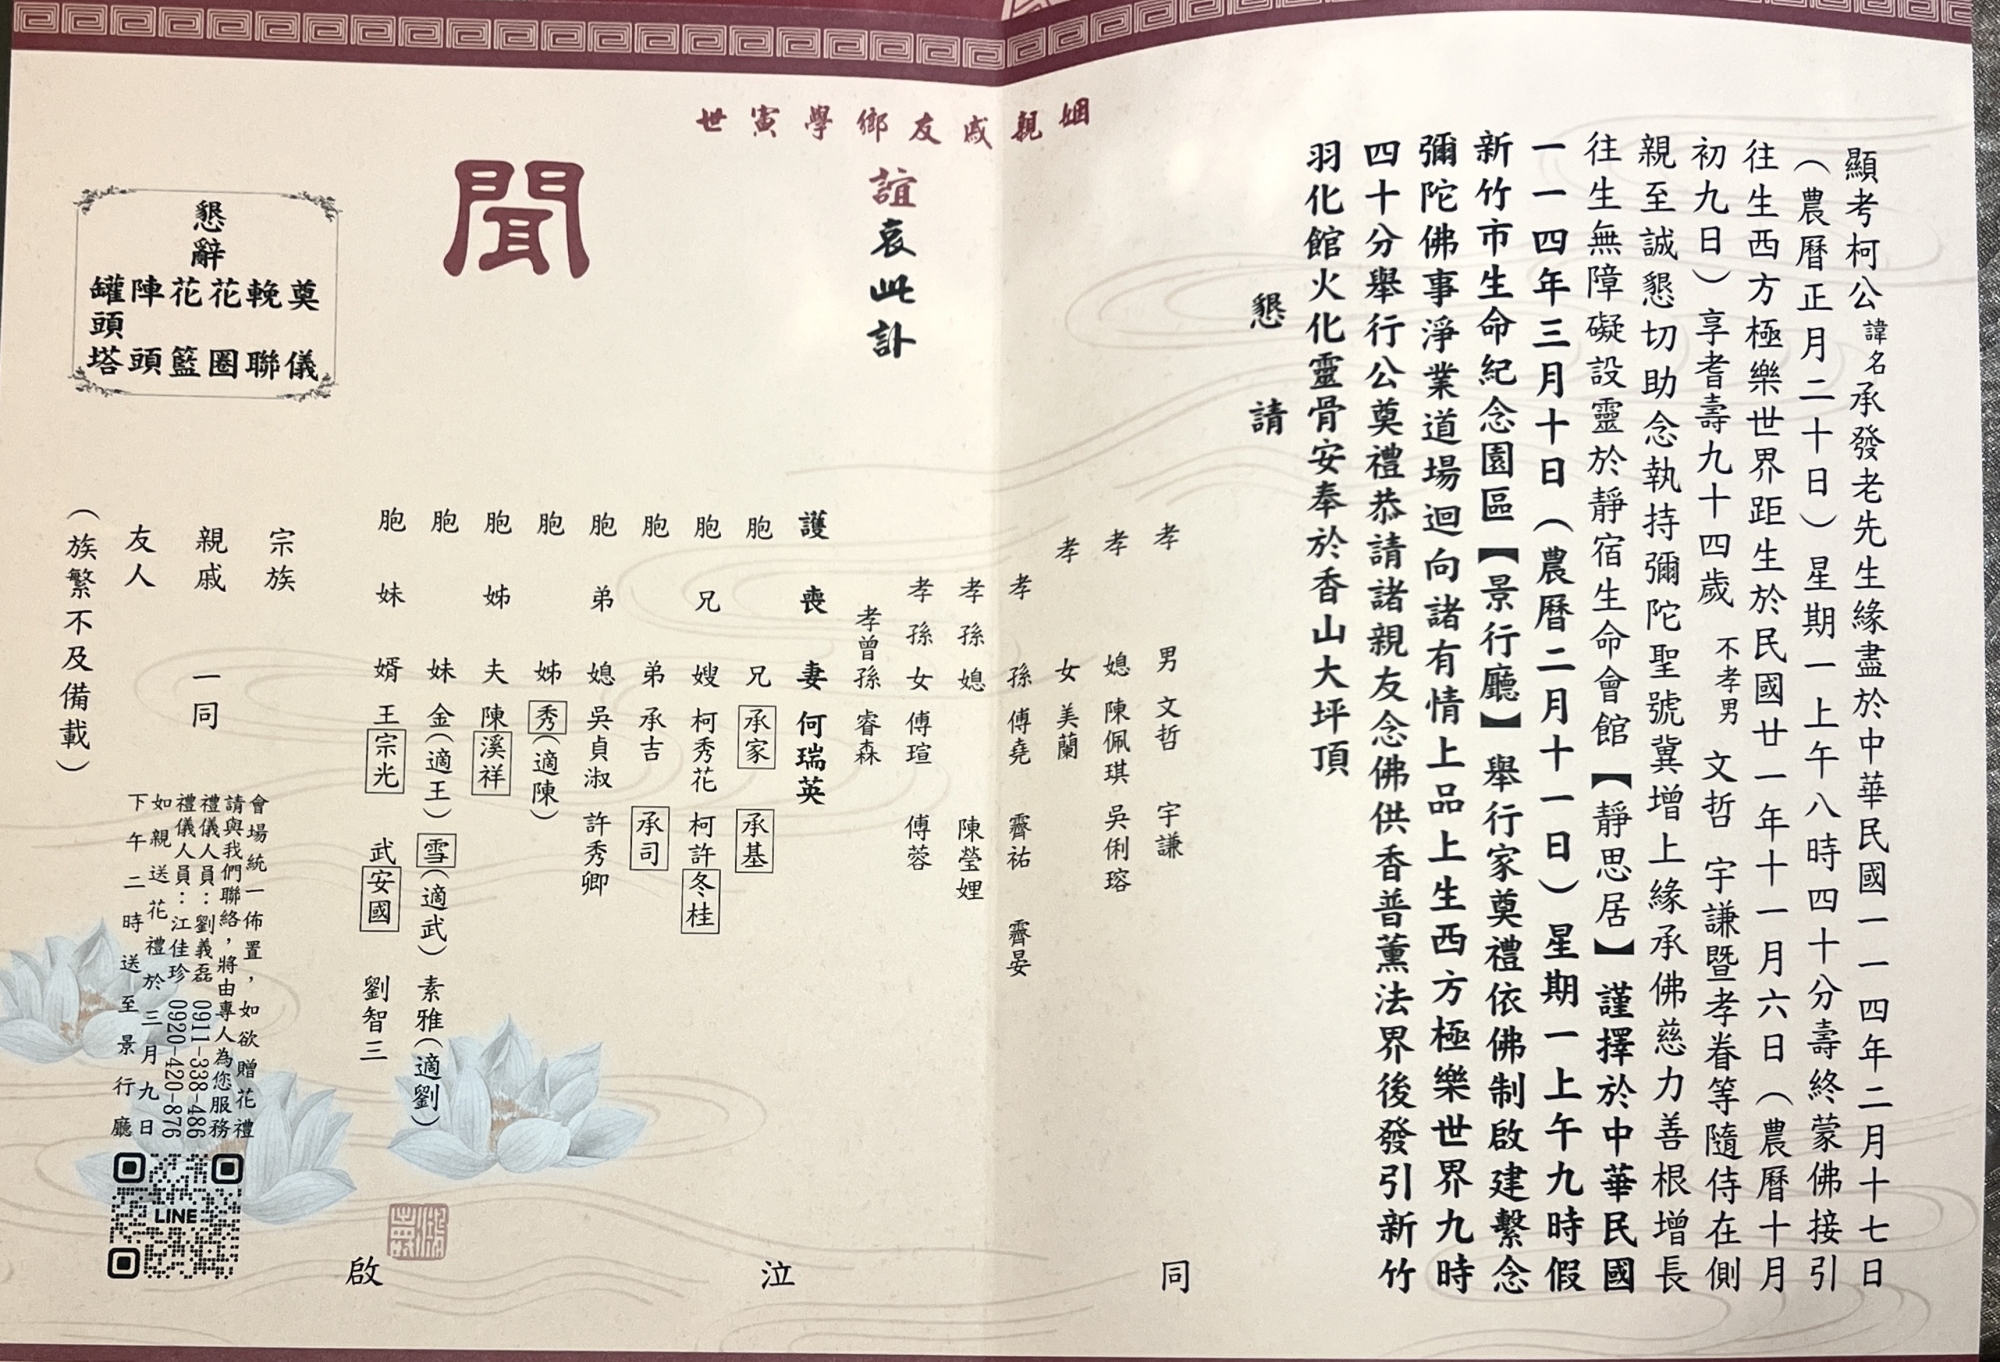 顯考柯公諱名承發老先生緣盡於中華民國一一四年二月十七日
（農曆正月二十日）星期一上午八時四十分壽終蒙佛接引
往生西方極樂世界距生於民國廿一年十一月六日（農曆十月
初九日）享耆壽九十四歲 不孝男 文哲 宇謙暨孝眷等隨侍在側
親至誠懇切助念執持彌陀聖號冀增上緣承佛慈力善根增長
往生無障礙設靈於靜宿生命會館【靜思居】謹擇於中華民國
一一四年三月十日（農曆二月十一日）星期一上午九時假
新竹市生命紀念園區【景行廳】舉行家奠禮依佛制啟建繫念
彌陀佛事淨業道場迴向諸有情上品上生西方極樂世界九時
四十分舉行公奠禮恭請諸親友念佛供香普薰法界後發引新竹
羽化館火化靈骨安奉於香山大坪頂
懇請
姻親戚友鄉學寅世
誼哀此訃
聞
孝男 文哲 宇謙
孝媳 陳佩琪 吳俐瑢
孝女 美蘭
孝孫 傅堯 霽祐 霽晏
孝孫媳 陳瑩娌
孝孫女 傅瑄 傅蓉
孝曾孫 睿森
護喪妻 何瑞英
胞兄 承家 承基
胞兄嫂 柯秀花 柯許冬桂
胞弟 承吉 承司
胞弟媳 吳貞淑 許秀卿
胞姊 秀（適陳）
胞姊夫 陳溪祥
胞妹 金（適王） 雪（適武） 素雅（適劉）
胞妹婿 王宗光 武安國 劉智三
宗族
親戚 一同
友人
（族繁不及備載）
同泣啟
懇辭
奠儀
輓聯
花圈
花籃
陣頭
罐頭塔
會場統一佈置，如欲贈花禮
請與我們聯絡，將由專人為您服務
禮儀人員：劉義磊 0911-338-486
禮儀人員：江佳珍 0920-420-876
如親送花禮於三月九日
下午二時送至景行廳
LINE